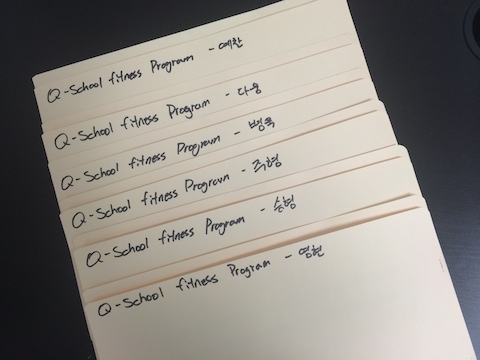 Q-School fitness Program - 예찬
Q-School fitness Program - 다웅
Q-School fitness Program - 병욱
Q-School fitness Program - 주형
Q-School fitness Program - 순형
Q-School fitness Program - 영현